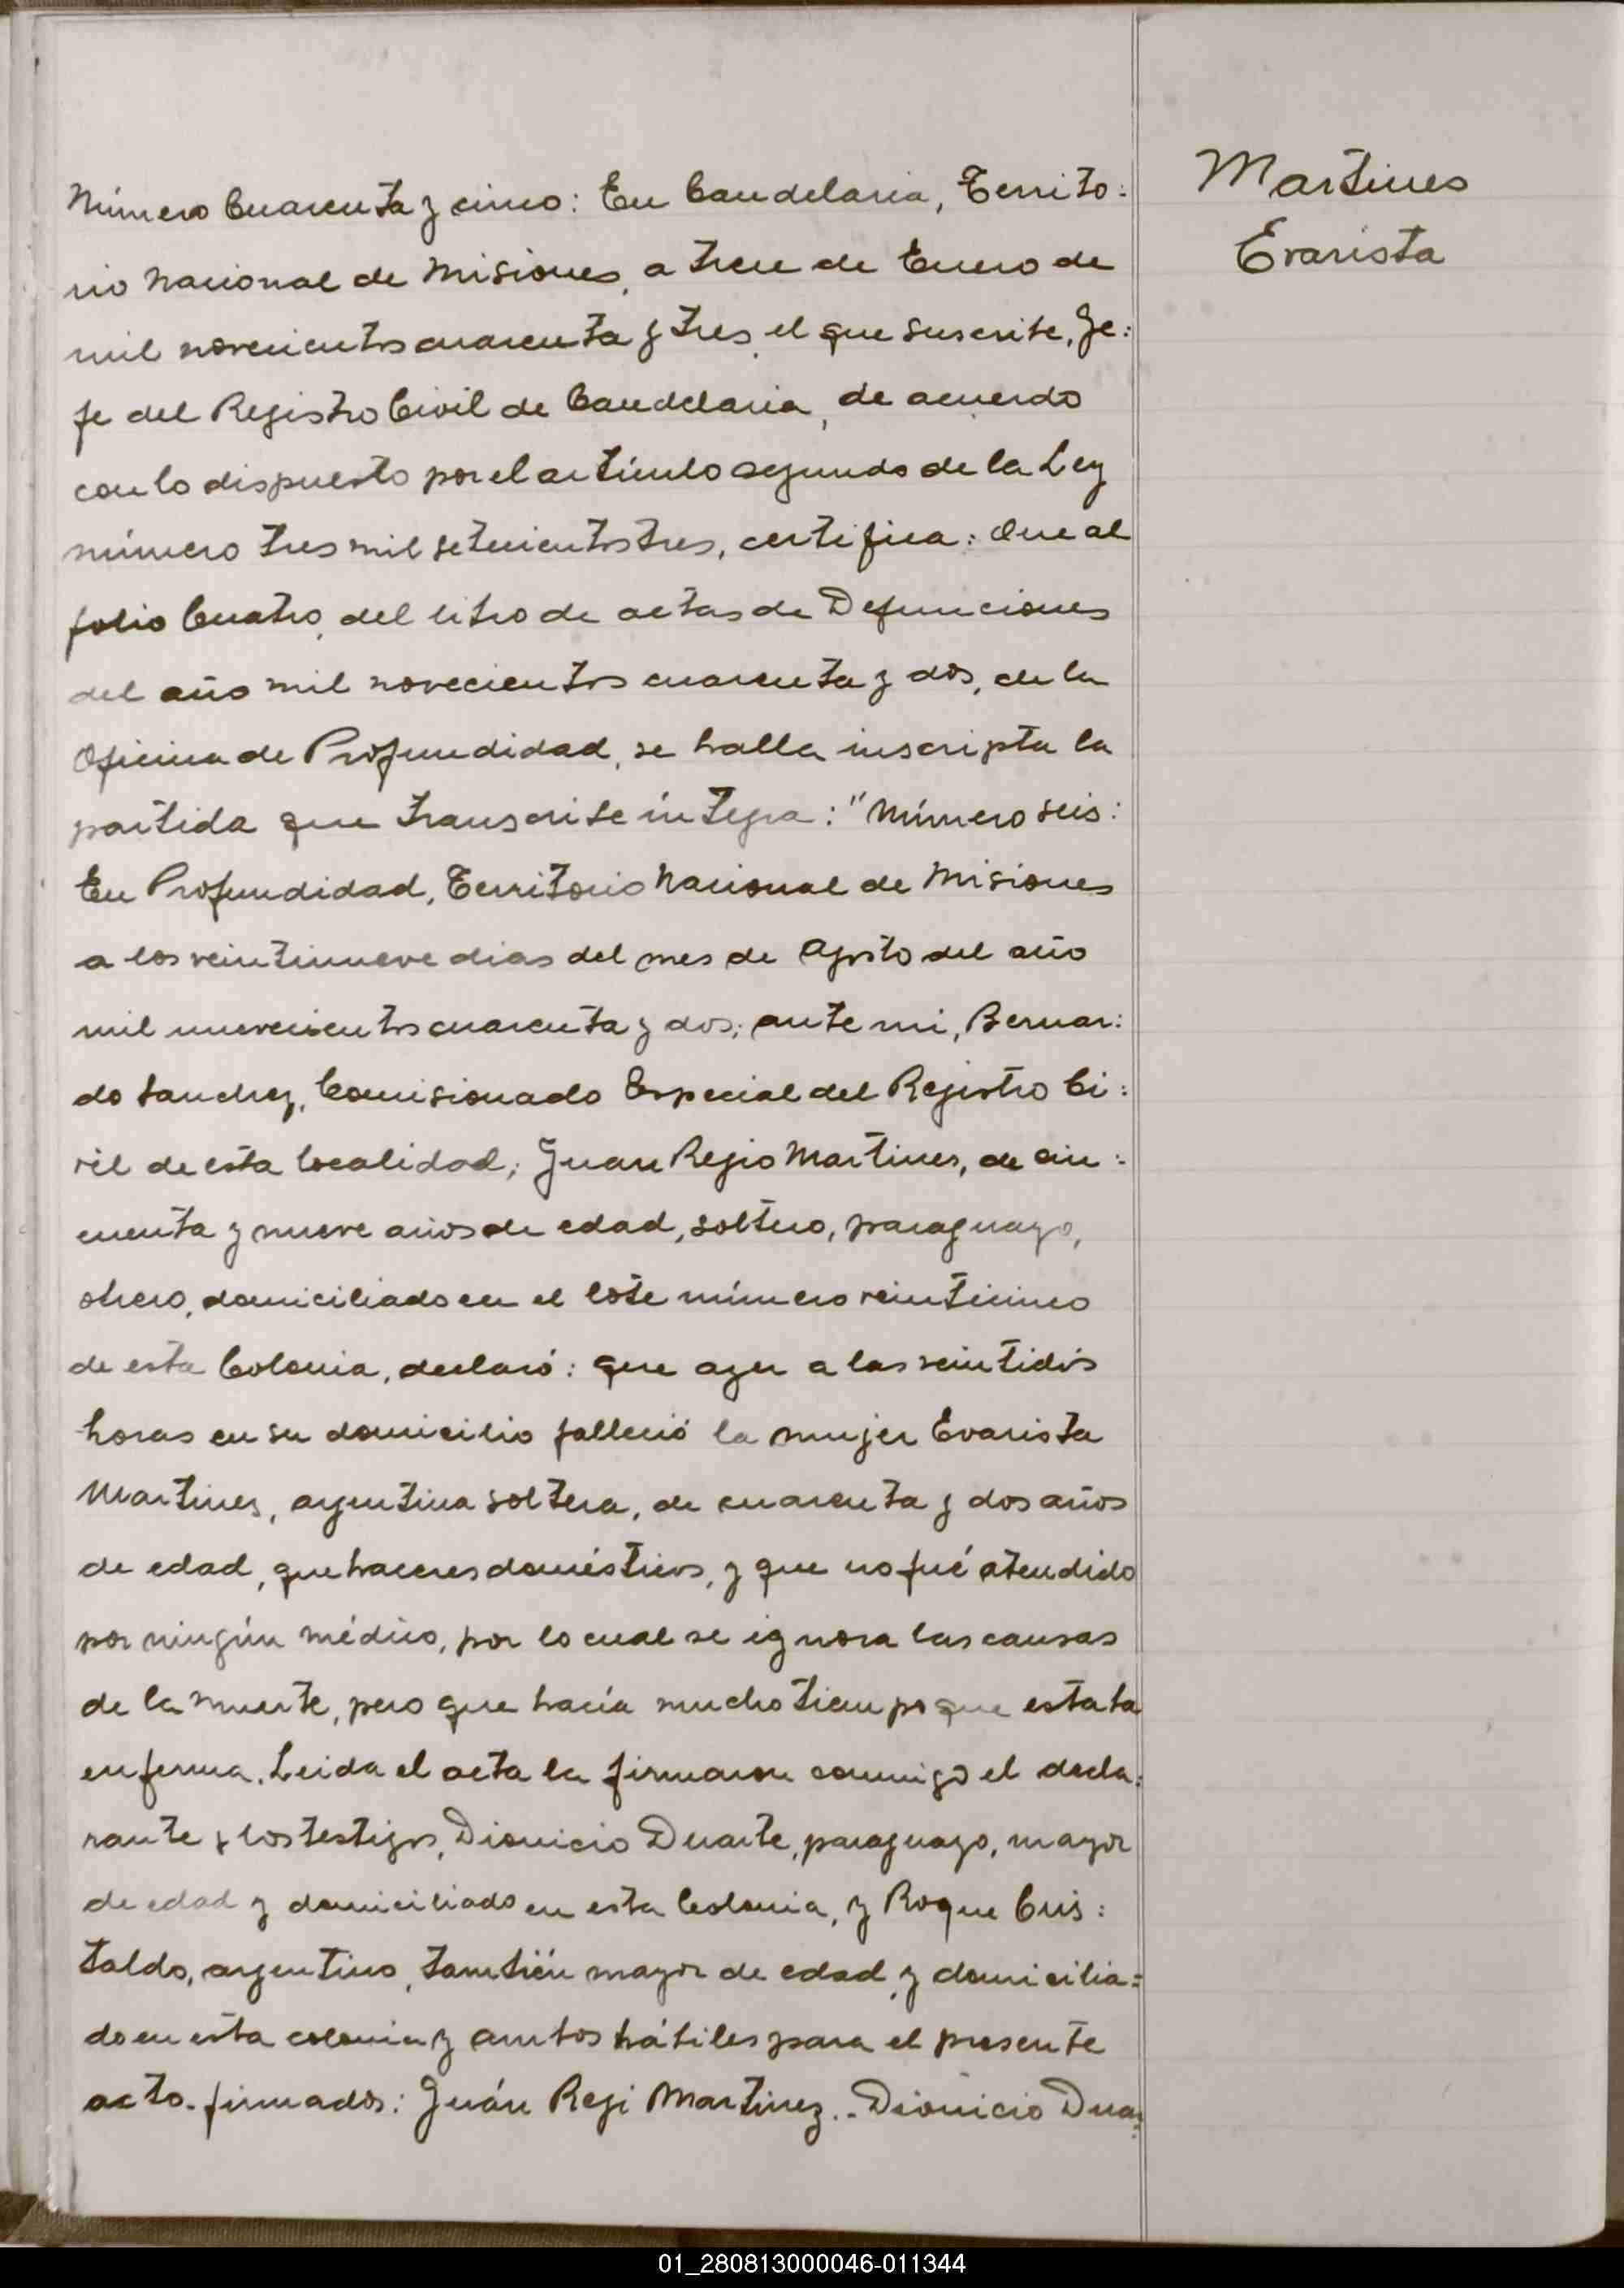 Número Cuarenta y cinco: En Candelaria, Territo:
rio Nacional de Misiones, a trece de Enero de
mil novecientos cuarenta y tres, el que suscribe, Je:
fe del Registro Civil de Candelaria, de acuerdo
con lo dispuesto por el artículo segundo de la Ley
número tres mil setecientos tres, certifica: Que al
folio Cuatro, del libro de actas de Defunciones
del año mil novecientos cuarenta y dos, de la
Oficina de Profundidad, se halla inscripta la
partida que transcribe íntegra: "Número seis:
En Profundidad, Territorio Nacional de Misiones
a los veintinueve dias del mes de Agosto del año
mil nuevecientos cuarenta y dos; ante mi, Bernar:
do Sanchez, Comisionado Especial del Registro Ci:
vil de esta localidad; Juan Regio Martines, de cin:
cuenta y nueve años de edad, soltero, paraguayo,
obrero, domiciliado en el lote número veinticinco
de esta Colonia, declaró: que ayer a las veintidós
horas en su domicilio falleció la mujer Evarista
Martines, argentina soltera, de cuarenta y dos años
de edad, quehaceres domésticos, y que no fué atendido
por ningún médico, por lo cual se ignora las causas
de la muerte, pero que hacía mucho tiempo que estaba
enferma. Leida el acta la firmaron conmigo el decla:
rante y los testigos, Dionicio Duarte, paraguayo, mayor
de edad y domiciliado en esta Colonia, y Roque Cris:
taldo, argentino, también mayor de edad, y domicilia=
do en esta colonia y ambos hábiles para el presente
acto. firmados: Juán Regi Martinez.. Dionicio Duar:
Martines
Evarista
01_280813000046-011344